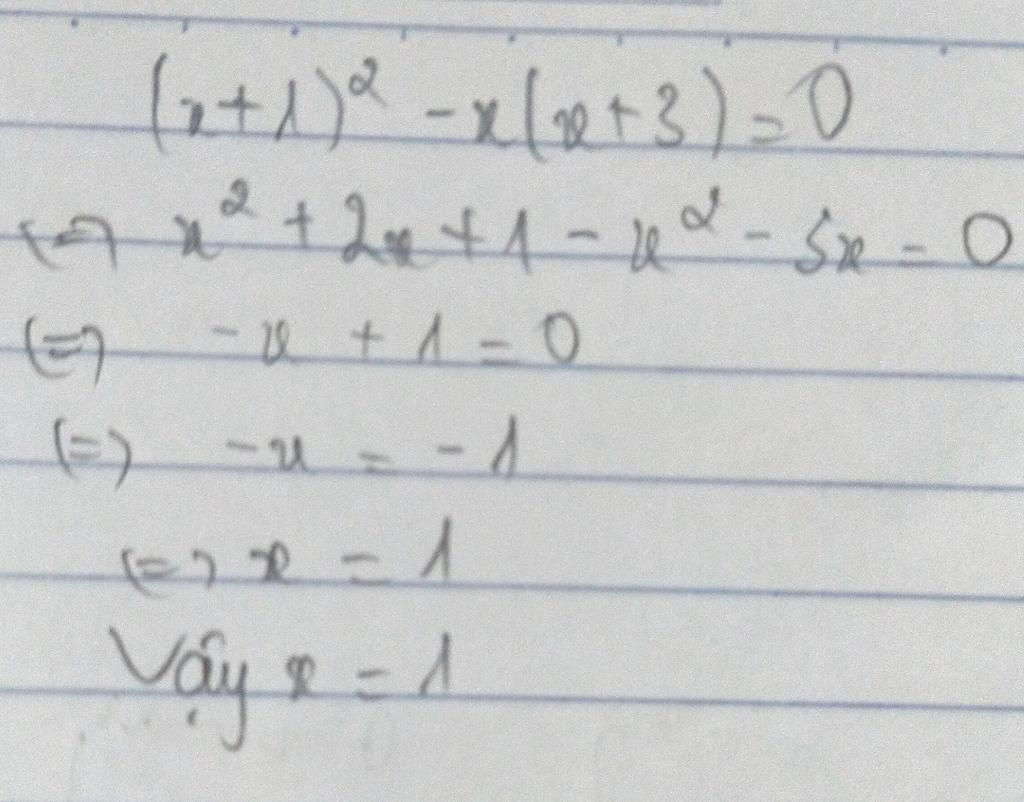 (x+1)² - x(x+3) = 0
<=> x² + 2x + 1 - x² - 3x = 0
<=> -x + 1 = 0
<=> -x = -1
<=> x = 1
Vậy x = 1